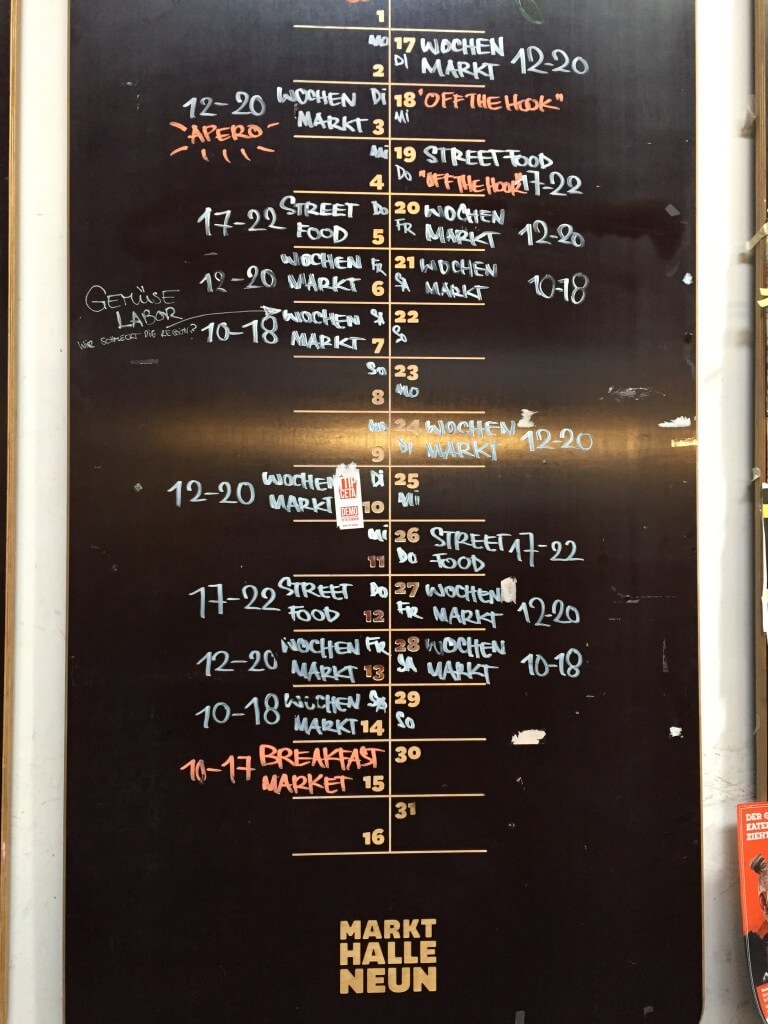 1
MO
2
12-20 WOCHEN DI
APERO MARKT 3
MI
4
17-22 STREET DO
FOOD 5
12-20 WOCHEN FR
MARKT 6
GEMÜSE
LABOR
10-18 WOCHEN SA
MARKT 7
SO
8
9
12-20 WOCHEN DI
MARKT 10
DEMO
MI
11
17-22 STREET DO
FOOD 12
12-20 WOCHEN FR
MARKT 13
10-18 WOCHEN SA
MARKT 14
10-17 BREAKFAST
MARKET 15
16
17 WOCHEN
DI MARKT 12-20
18 "OFF THE HOOK"
MI
19 STREET FOOD
DO "OFF THE HOOK" 17-22
20 WOCHEN
FR MARKT 12-20
21 WOCHEN
SA MARKT 10-18
22
SO
23
MO
24 WOCHEN
DI MARKT 12-20
25
MI
26 STREET 17-22
DO FOOD
27 WOCHEN
FR MARKT 12-20
28 WOCHEN
SA MARKT 10-18
29
SO
30
31
MARKT
HALLE
NEUN
DER
ZIEHT